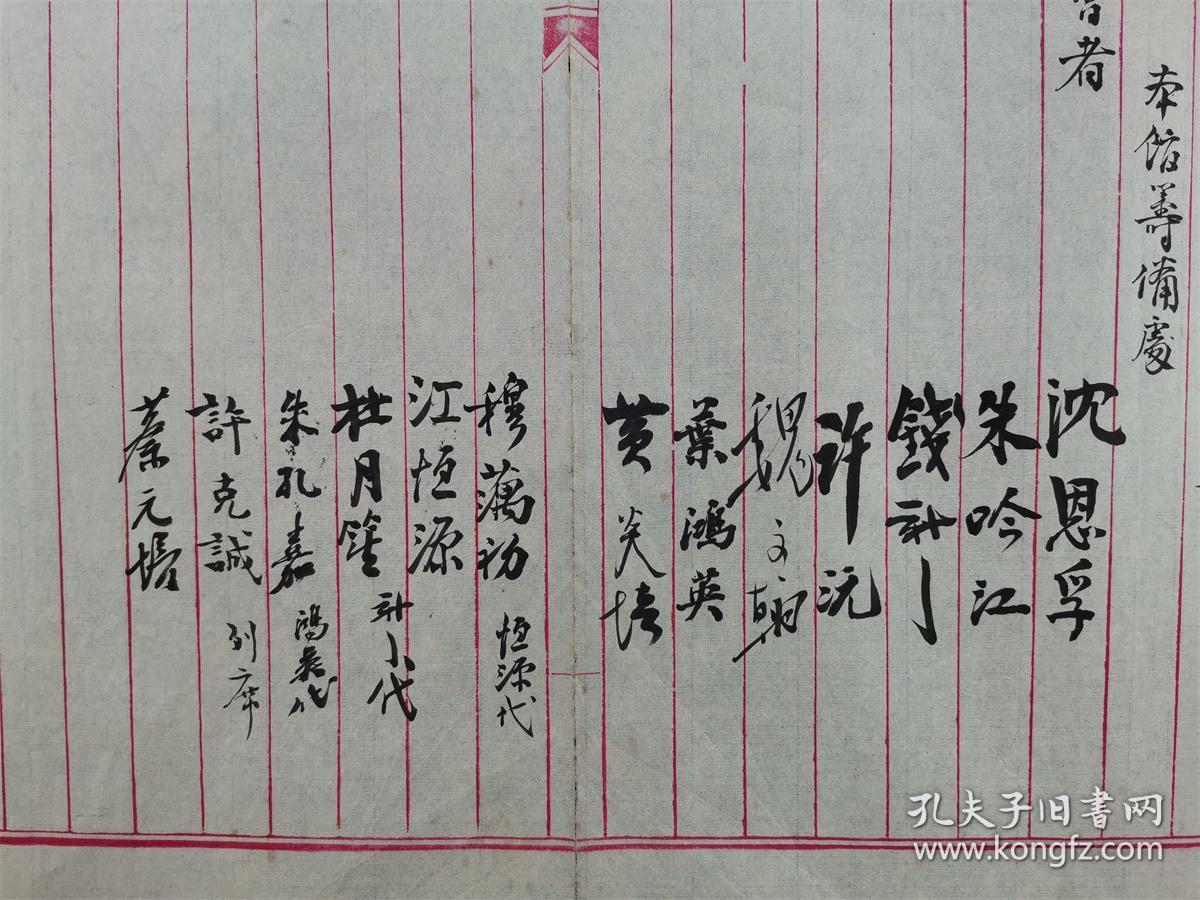 本舘籌備處
者
沈恩孚
朱吟江
錢新之
許沅
魏文翰
葉鴻英
黄炎培
穆藕初 恒源代
江恒源
杜月笙 新之代
朱孔嘉 鴻英代
許克誠 列席
蔡元
孔夫子旧书网
www.kongfz.com